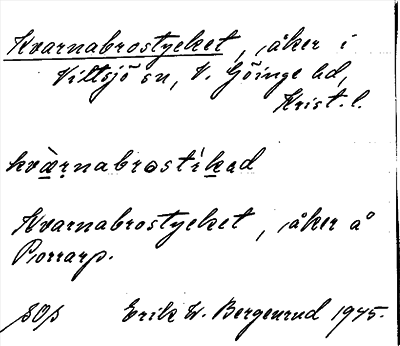 Kvarnabrostycket, åker i
Vittsjö sn, V. Göinge hd,
Krist. l.
kvàrnabrostikad
Kvarnabrostycket, åker å
Porrarp.
Erik W. Bergenrud 1945.